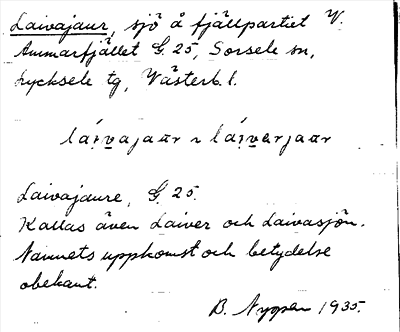 Laivajaur, sjö å fjällpartiet V.
Ammarfjället G. 25, Sorsele sn,
Lycksele tg, Västerb. l.
láivajaər ~ láiverjaər
Laivajaure, G. 25.
Kallas även Laiver och Laivasjön.
Namnets uppkomst och betydelse
obekant.
B. Nygren 1935.